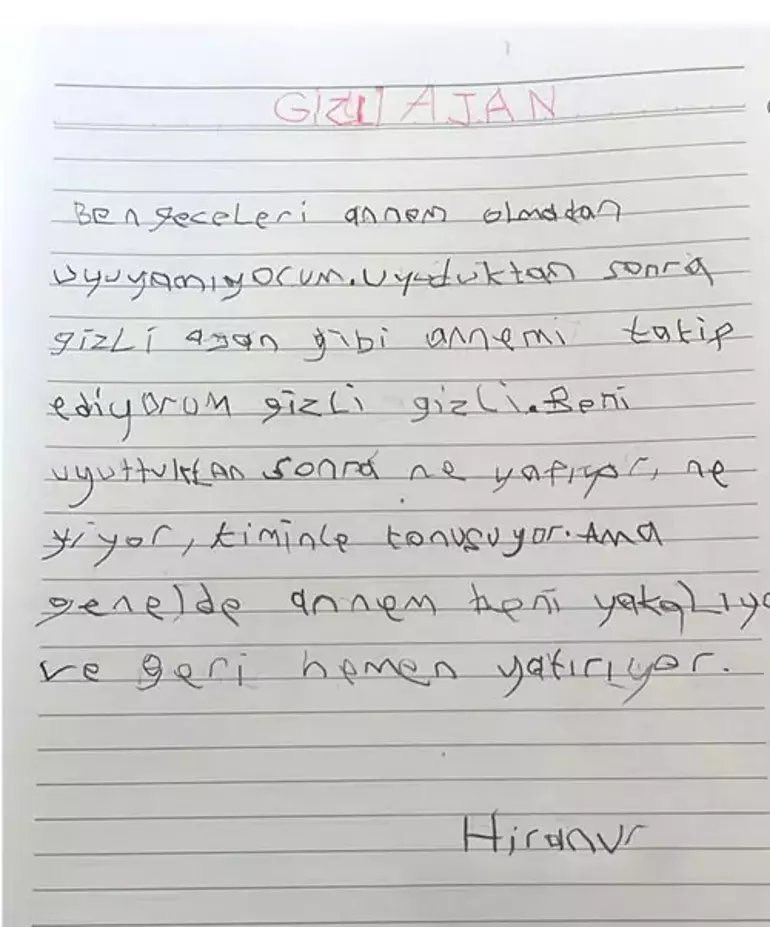 GİZLİ AJAN
Ben geceleri annem olmadan
uyuyamıyorum. Uyuduktan sonra
gizli ajan gibi annemi takip
ediyorum gizli gizli. Beni
uyuttuktan sonra ne yapıyor, ne
yiyor, kiminle konuşuyor. Ama
genelde annem beni yakalıyo
ve geri hemen yatırıyor.
Hiranur